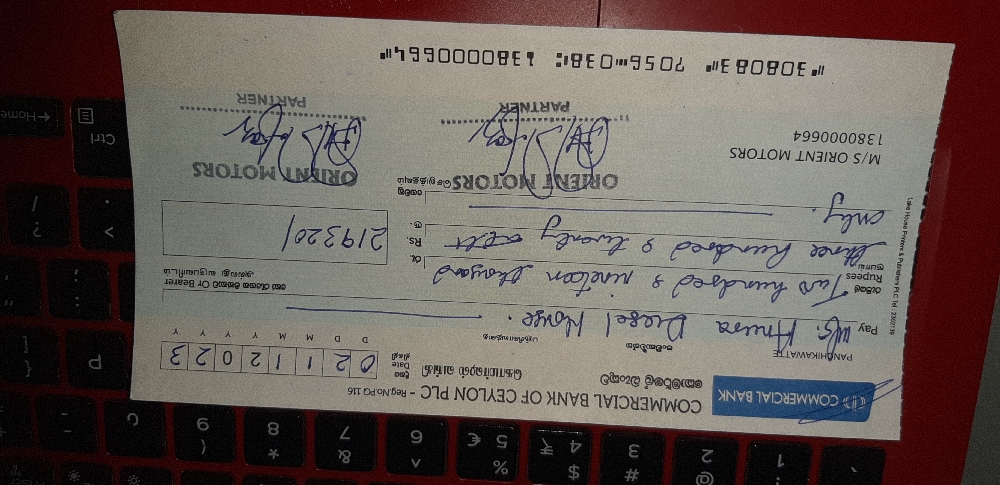 COMMERCIAL BANK
කොමර්ෂල් බැංකුව கொமர்ஷல் வங்கி
COMMERCIAL BANK OF CEYLON PLC - Reg.No.PQ 116
PANCHIKAWATTE
දිනය
Date
திகதி
0 2 1 1 2 0 2 3
D D M M Y Y Y Y
Pay M/s. Diesel House.
Or Bearer
රුපියල්
Rupees
ரூபாய்
Two hundred & nineteen thousand
three hundred & twenty
only.
රු.
Rs.
ரூ.
219320/
M/S ORIENT MOTORS
1380000664
ORIENT MOTORS
PARTNER
ORIENT MOTORS
PARTNER
Lake House Printers & Publishers PLC
⑈308083⑈ 7056⑉038⑆ 1380000664⑈
Home
Ctrl
P